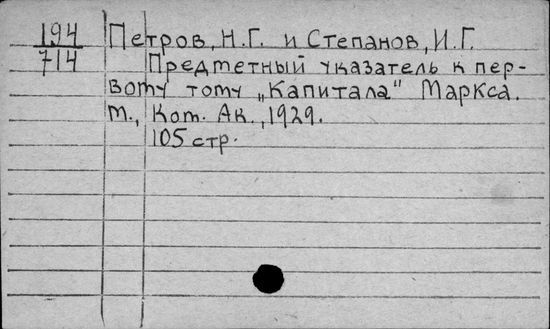 194 Петров, Н.Г. и Степанов, И.Г.
714 Предметный указатель к пер-
вому тому „Капитала" Маркса.
М., Ком. Ак., 1929.
105 стр.